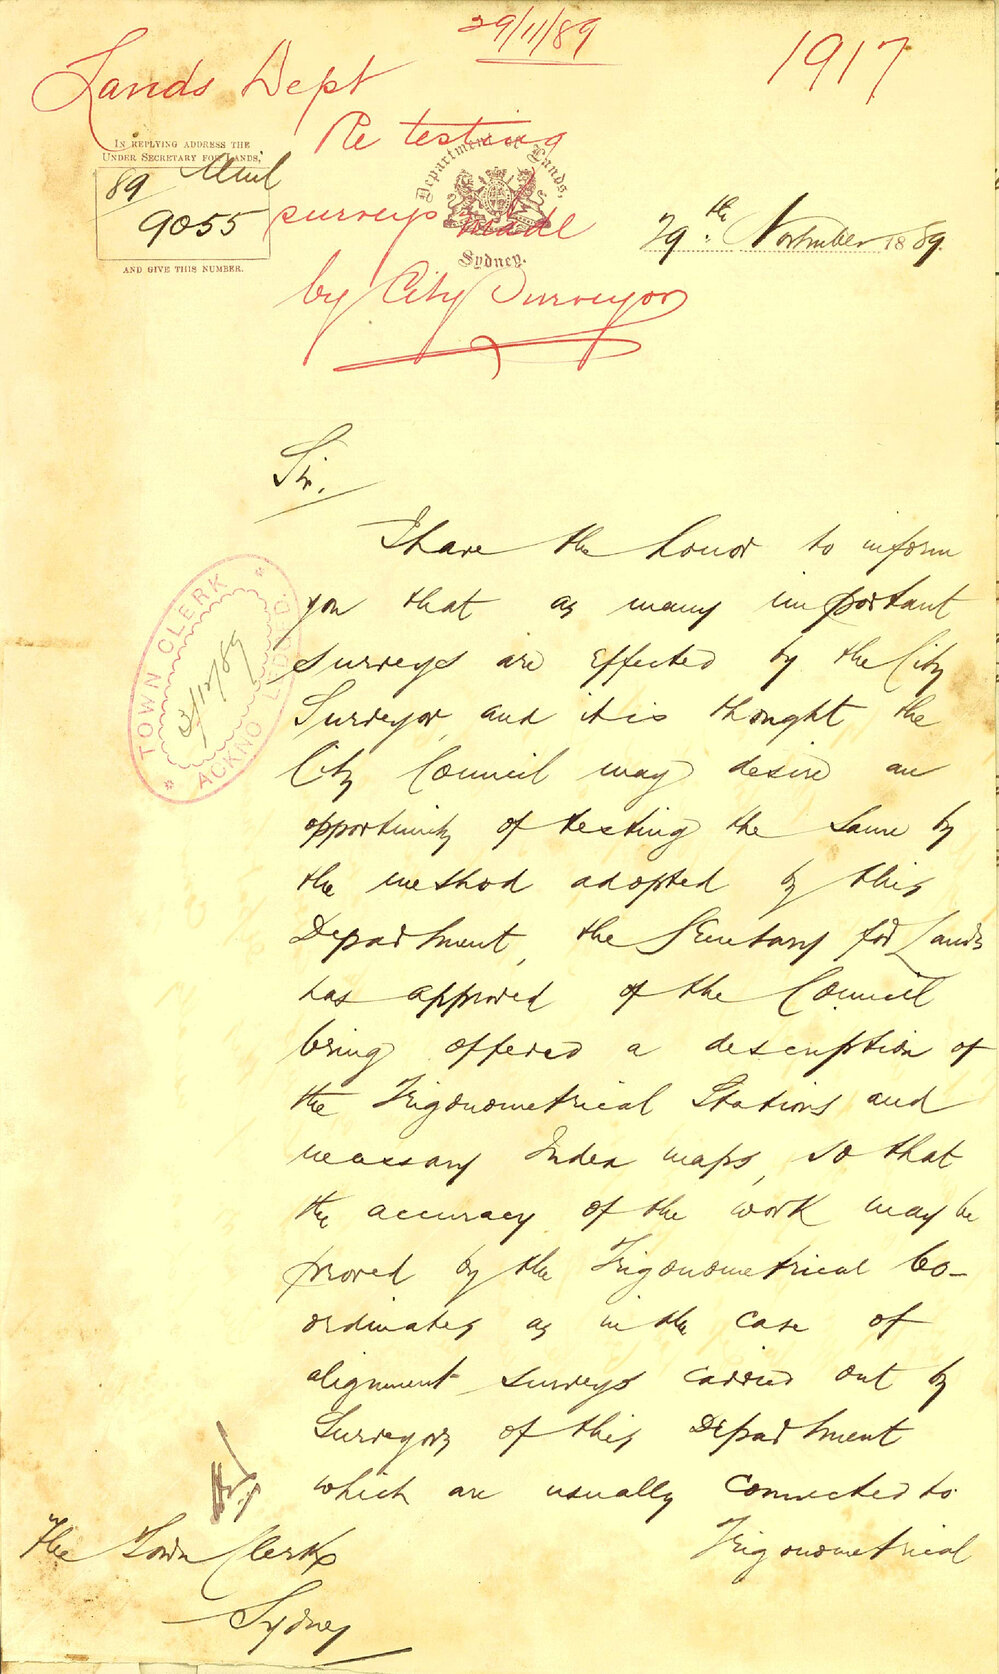 29/11/89
1917
Lands Dept
Re testing
surveys made
by City Surveyor
IN REPLYING ADDRESS THE
UNDER SECRETARY FOR LANDS,
89
9055
AND GIVE THIS NUMBER.
Department of Lands,
Sydney.
29th November 1889.
Sir,
I have the honor to inform
you that as many important
surveys are effected by the City
Surveyor, and it is thought the
City Council may desire an
opportunity of testing the same by
the method adopted by this
Department, the Secretary for Lands
has approved of the Council
being offered a description of
the Trigonometrical Stations and
necessary Index maps, so that
the accuracy of the work may be
proved by the Trigonometrical Co-
ordinates as in the case of
alignment surveys carried out by
Surveyors of this Department
which are usually connected to
Trigonometrical
TOWN CLERK
/12/89
ACKNOWLEDGED.
The Town Clerk
Sydney